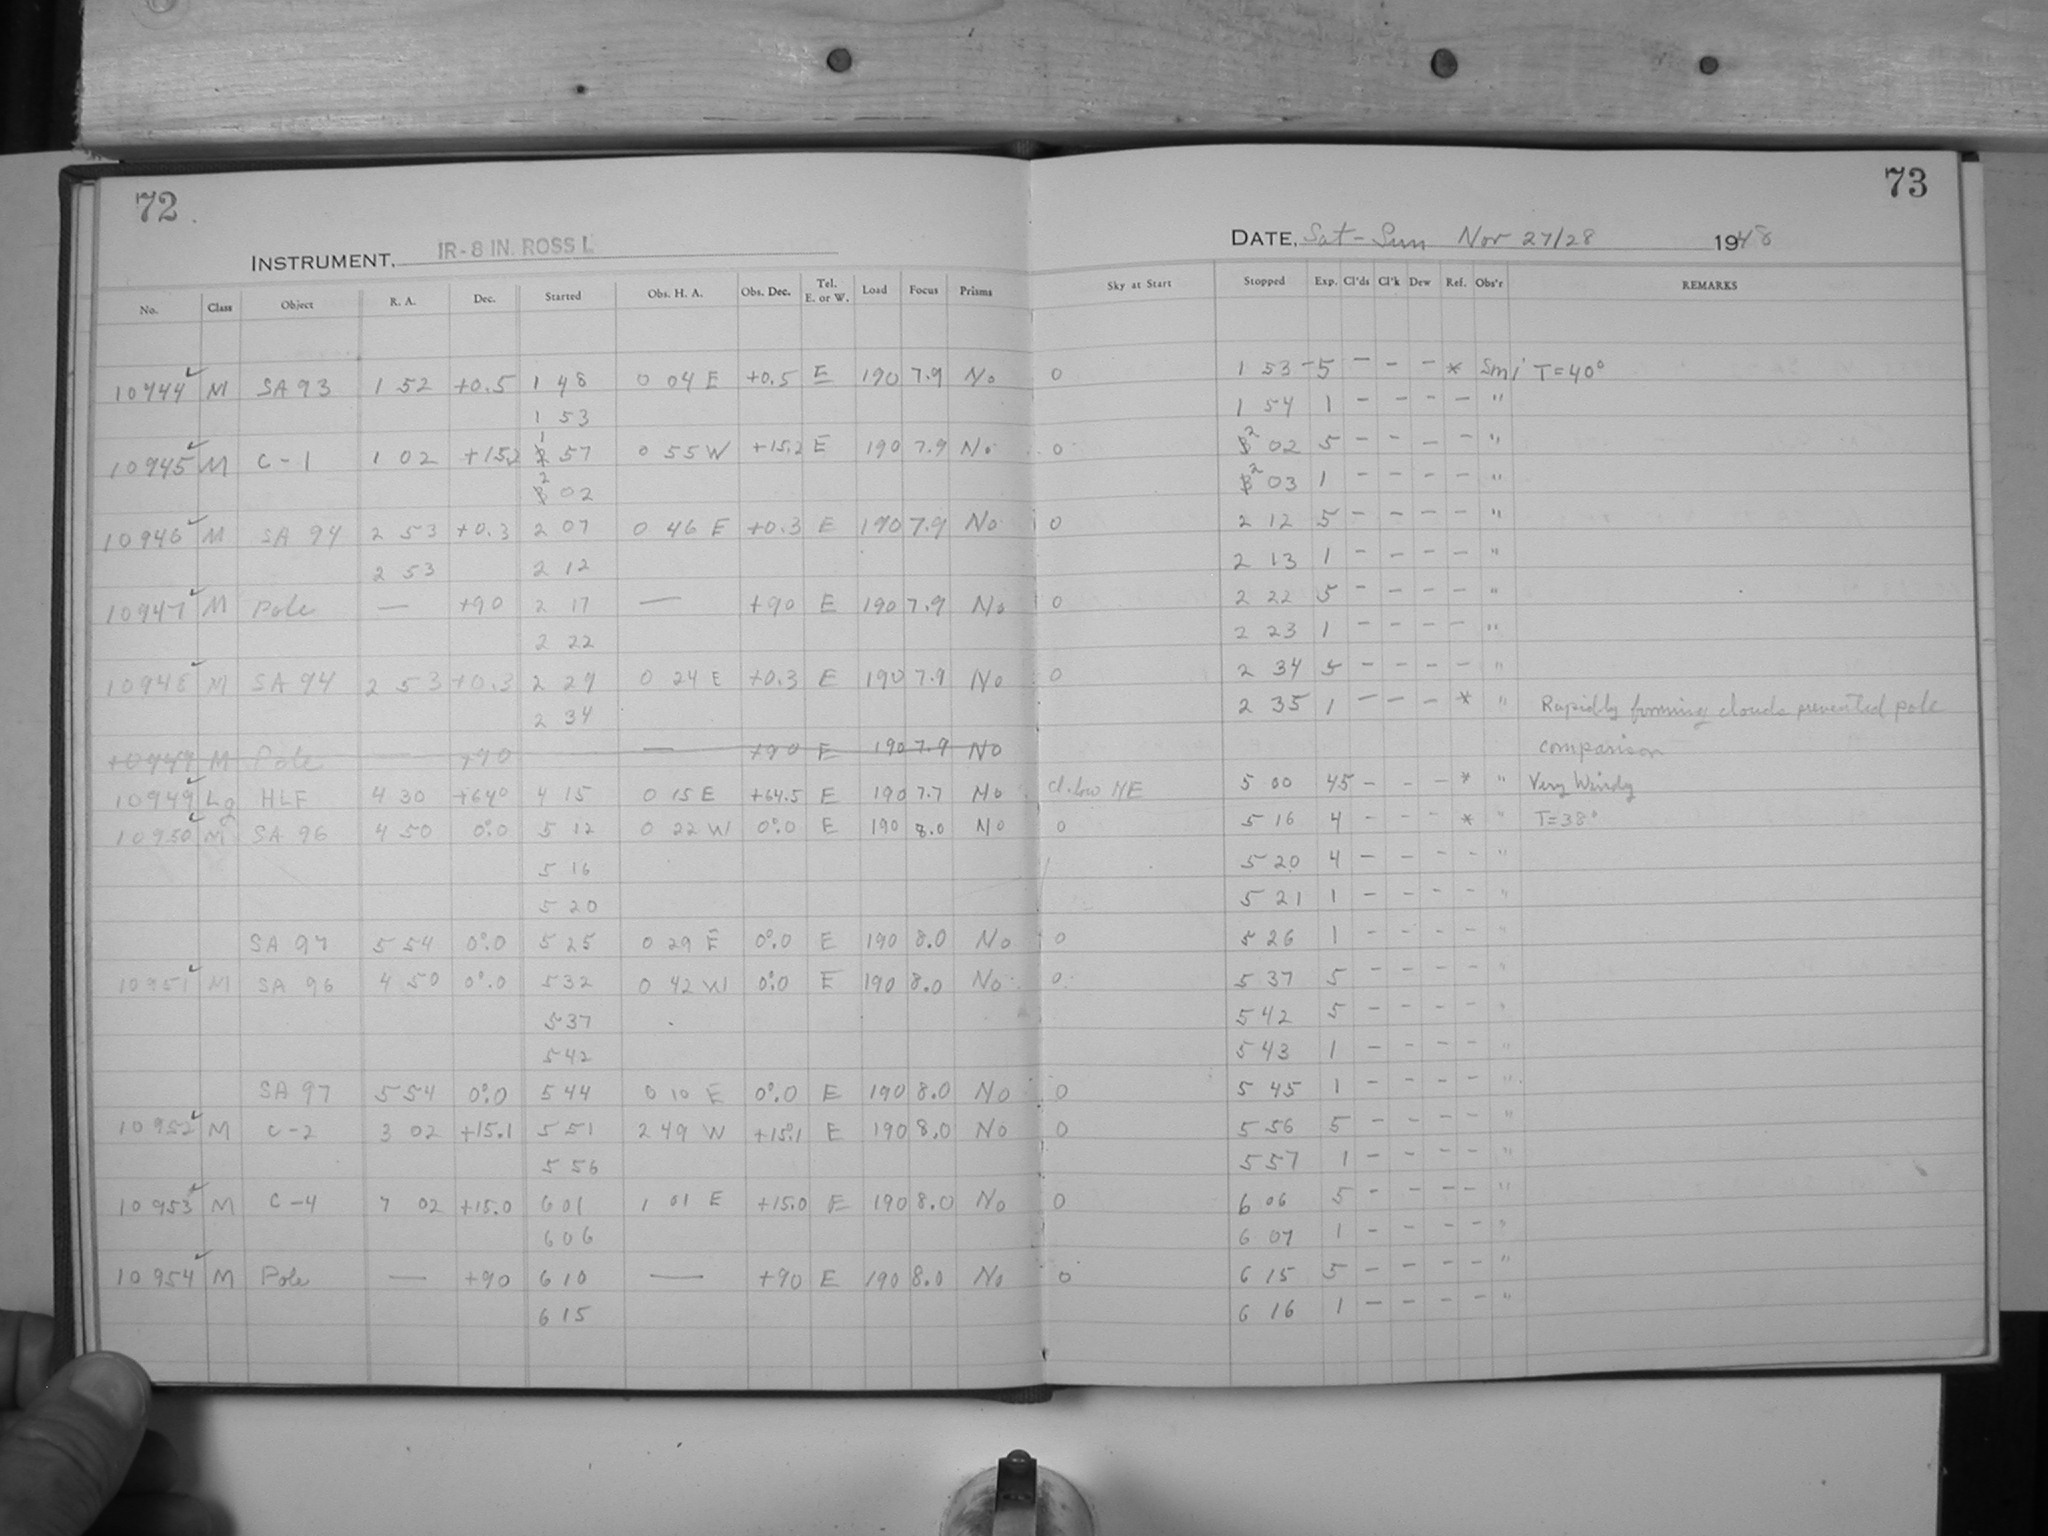 72
73
INSTRUMENT, IR-8 IN. ROSS L
DATE, Sat-Sun Nov 27/28 1948
No. Class Object R. A. Dec. Started Obs. H. A. Obs. Dec. Tel. E. or W. Load Focus Prisms Sky at Start Stopped Exp. Cl'ds Cl'k Dew Ref. Obs'r REMARKS
10944 M SA 93 1 52 +0.5 1 48 0 04 E +0.5 E 190 7.9 No 0 1 53 5 - - - * Smi T=40°
1 53 1 54 1 - - - - "
10945 M C-1 1 02 +15.2 1 57 0 55 W +15.2 E 190 7.9 No 0 2 02 5 - - - - "
2 02 2 03 1 - - - - "
10946 M SA 94 2 53 +0.3 2 07 0 46 E +0.3 E 190 7.9 No 0 2 12 5 - - - - "
2 53 2 12 2 13 1 - - - - "
10947 M Pole — +90 2 17 — +90 E 190 7.9 No 0 2 22 5 - - - - "
2 22 2 23 1 - - - - "
10948 M SA 94 2 53 +0.3 2 29 0 24 E +0.3 E 190 7.9 No 0 2 34 5 - - - - "
2 34 2 35 1 - - - * " Rapidly forming clouds prevented pole
10949 M Pole — +90 — +90 E 190 7.9 No comparison
10949 Lg HLF 4 30 +64° 4 15 0 15 E +64.5 E 190 7.7 No cl. low NE 5 00 45 - - - * " Very Windy
10950 M SA 96 4 50 0°.0 5 12 0 22 W 0°.0 E 190 8.0 No 0 5 16 4 - - - * " T=38°
5 16 5 20 4 - - - - "
5 20 5 21 1 - - - - "
SA 97 5 54 0°.0 5 25 0 29 E 0°.0 E 190 8.0 No 0 5 26 1 - - - - "
10951 M SA 96 4 50 0°.0 5 32 0 42 W 0°.0 E 190 8.0 No 0 5 37 5 - - - - "
5 37 5 42 5 - - - - "
5 42 5 43 1 - - - - "
SA 97 5 54 0°.0 5 44 0 10 E 0°.0 E 190 8.0 No 0 5 45 1 - - - - "
10952 M C-2 3 02 +15.1 5 51 2 49 W +15.1 E 190 8.0 No 0 5 56 5 - - - - "
5 56 5 57 1 - - - - "
10953 M C-4 7 02 +15.0 6 01 1 01 E +15.0 E 190 8.0 No 0 6 06 5 - - - - "
6 06 6 07 1 - - - - "
10954 M Pole — +90 6 10 — +90 E 190 8.0 No 0 6 15 5 - - - - "
6 15 6 16 1 - - - - "